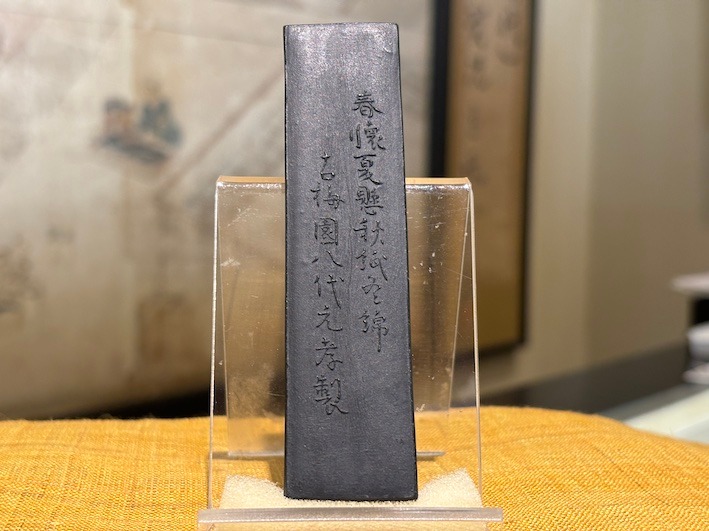 春懐夏懸秋紙冬綿
古梅園八代元孝製